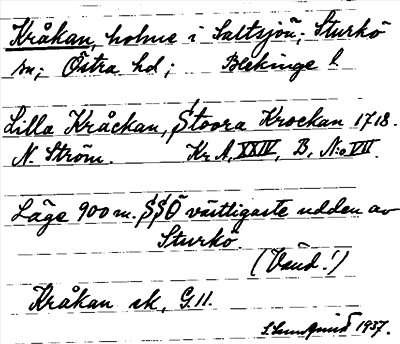 Kråkan, holme i Saltsjön; Sturkö
sn; Östra hd; Blekinge l.
Lilla Kråckan, Stoora Krockan 1718.
N. Ström. Kr A, XXIV, B, N:o VII.
Läge 900 m. SSÖ västligaste udden av
Sturkö.
(Vänd!)
Kråkan sk, G.11.
1937.